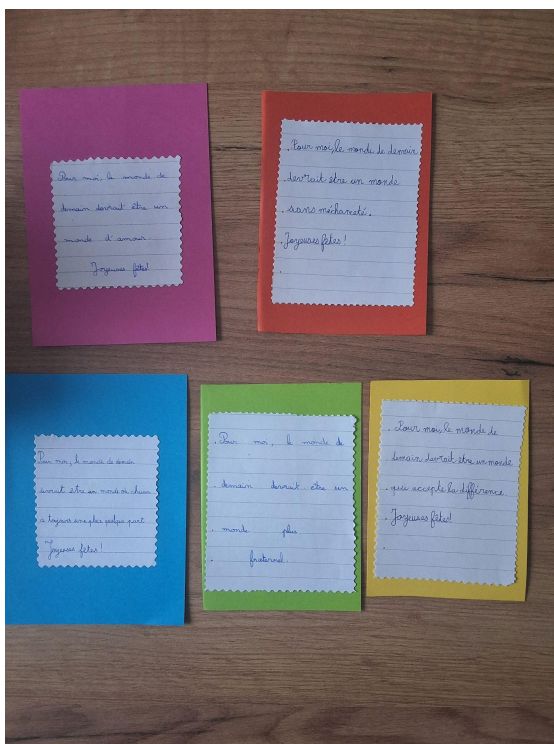 Pour moi, le monde de
demain devrait être un
monde d'amour
Joyeuses fêtes!
Pour moi, le monde de demain
devrait être un monde
sans méchanceté.
Joyeuses fêtes!
Pour moi, le monde de demain
devrait être un monde où chacun
a toujours une place quelque part
Joyeuses fêtes!
Pour moi, le monde de
demain devrait être un
monde plus
fraternel.
Pour moi, le monde de
demain devrait être un monde
qui accepte la différence.
Joyeuses fêtes!